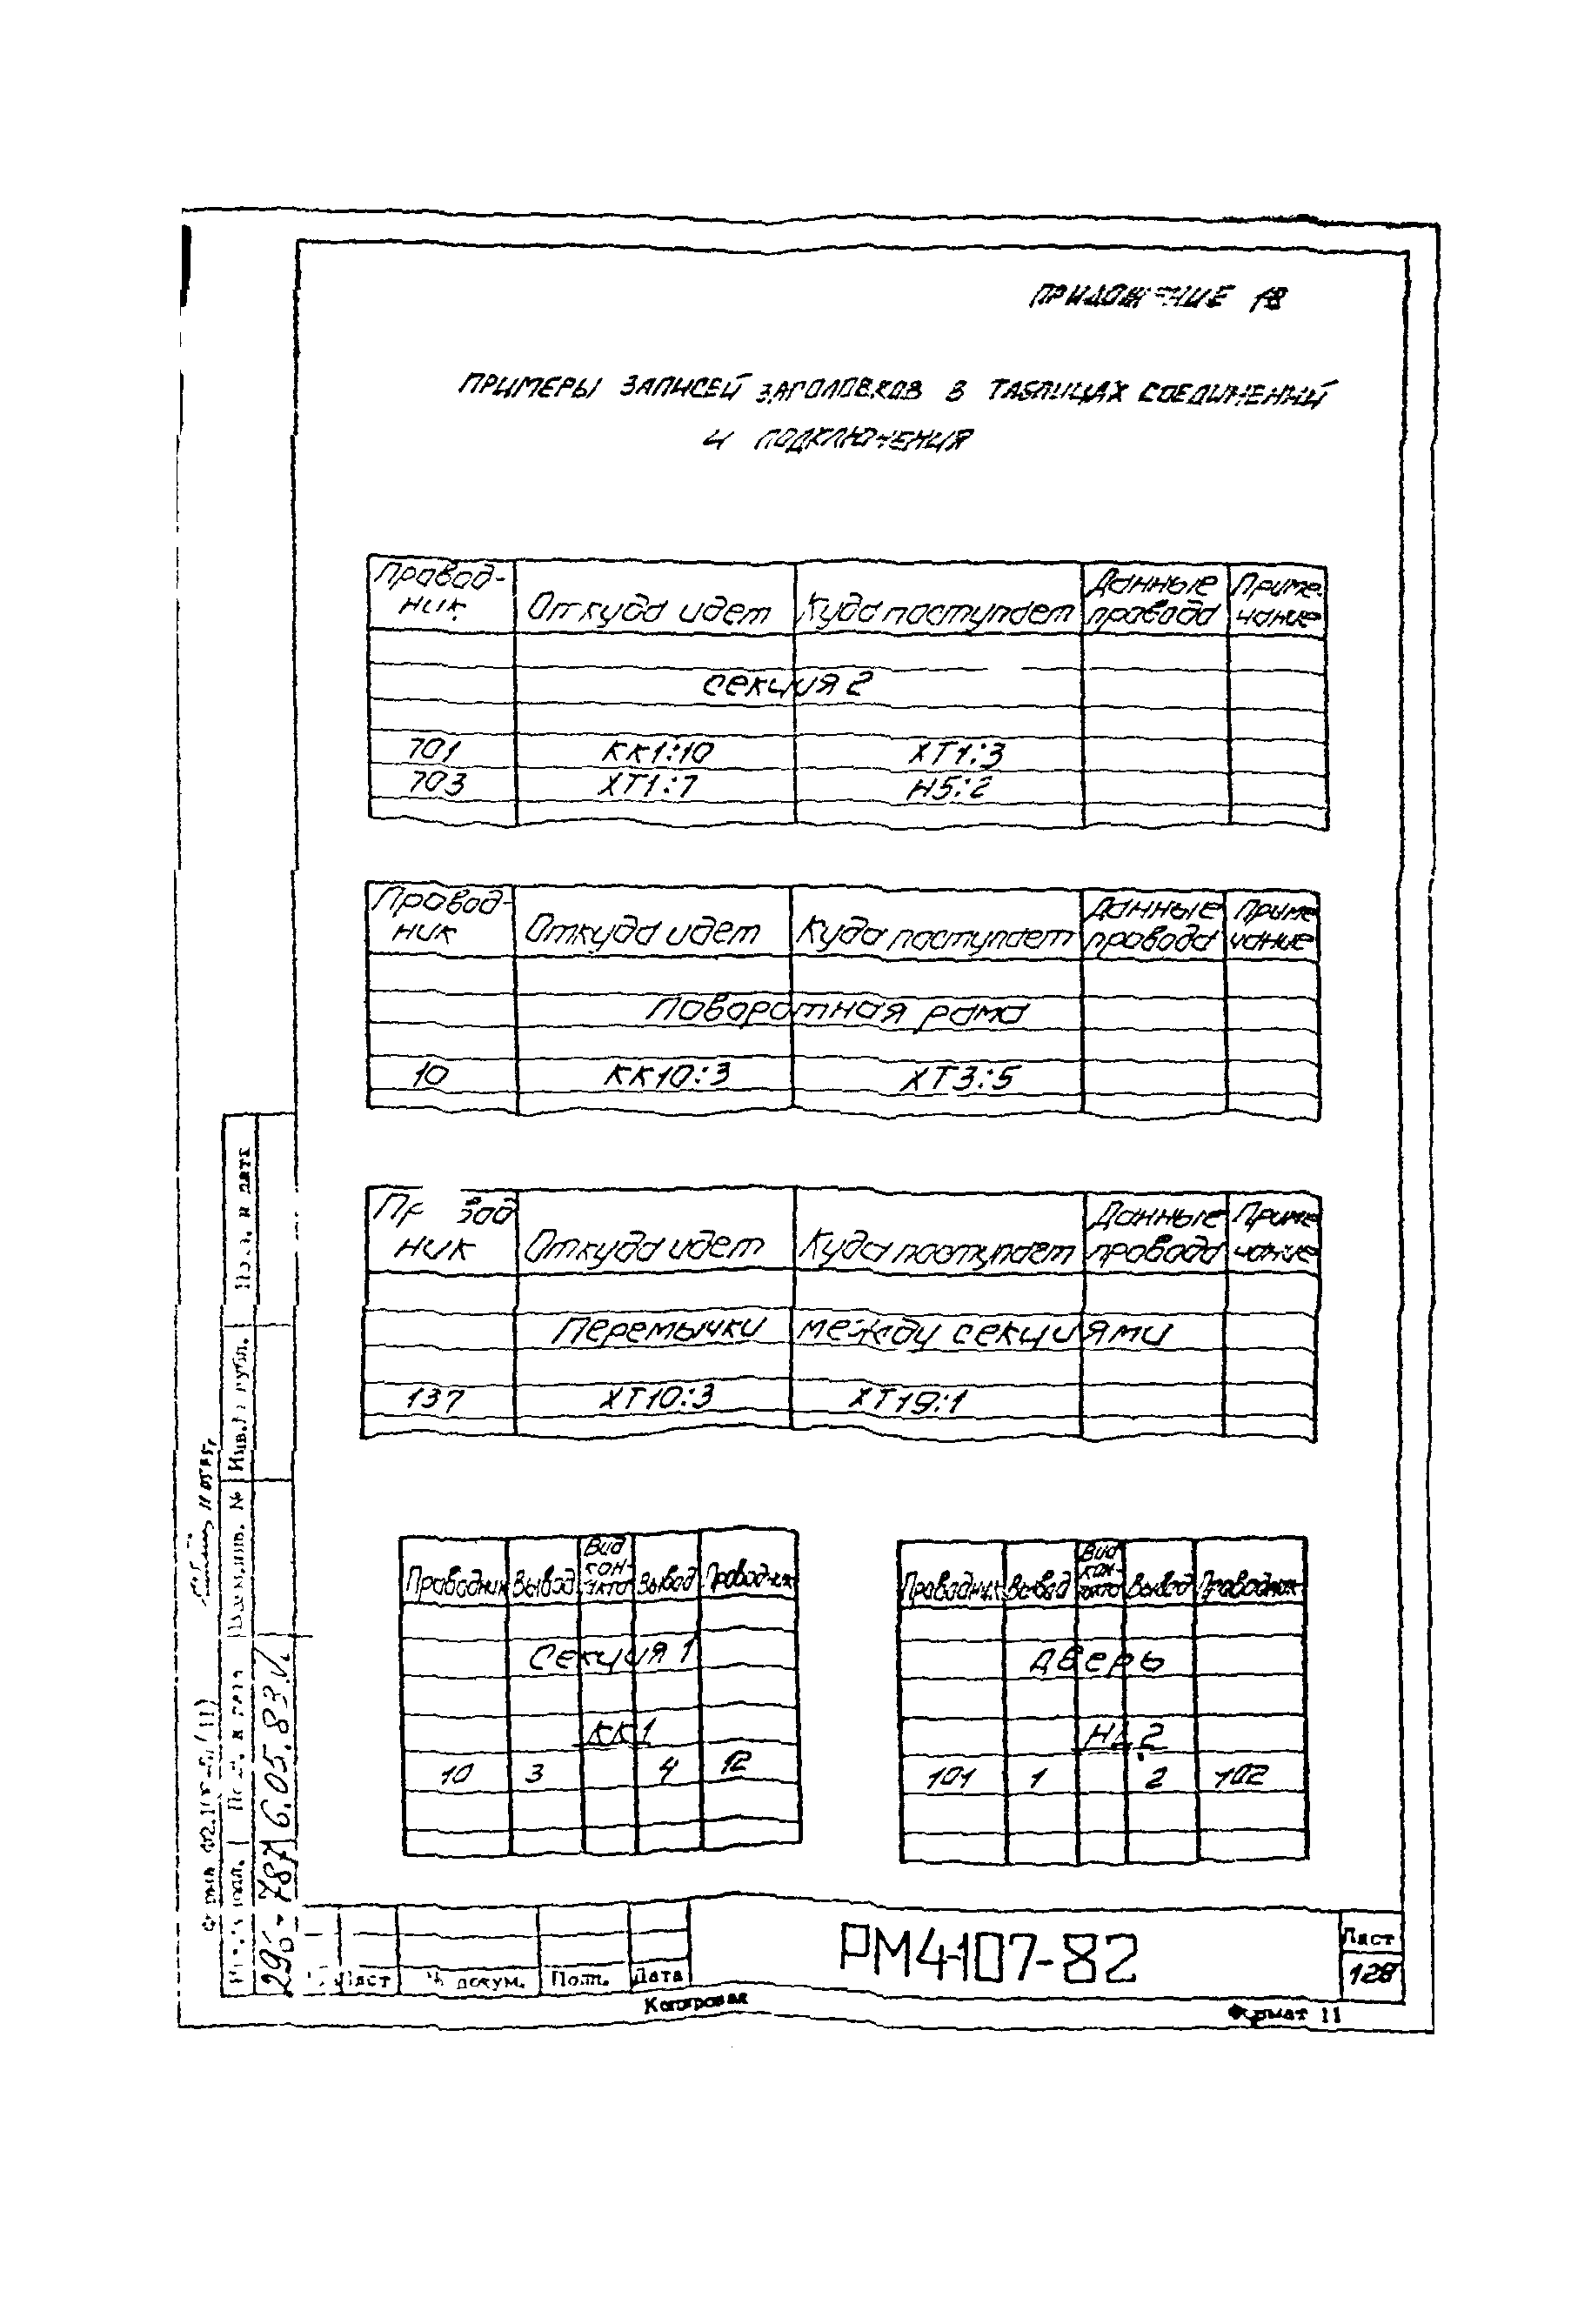 ПРИЛОЖЕНИЕ 18
ПРИМЕРЫ ЗАПИСЕЙ ЗАГОЛОВКОВ В ТАБЛИЦАХ СОЕДИНЕНИЙ
И ПОДКЛЮЧЕНИЯ
Провод- Данные Приме
ник Откуда идет Куда поступает провода чание
секция 2
701 КК1:10 ХТ1:3
703 ХТ1:7 Н5:2
Провод- Данные Приме
ник Откуда идет Куда поступает провода чание
Поворотная рама
10 КК10:3 ХТ3:5
Данные Приме
ник Откуда идет Куда поступает провода чание
Перемычки между секциями
137 ХТ10:3 ХТ19:1
Вид
кон-
Проводник Вывод такта Вывод Проводник
Секция 1
КК1
10 3 4 12
Вид
кон-
Проводник Вывод такта Вывод Проводник
Дверь
101 1 2 102
Лист № докум. Подп. Дата
РМ4-107-82
Лист
128
Копировал
Формат 11
Подп. и дата
Инв. № дубл.
Взам. инв. №
Подп. и дата